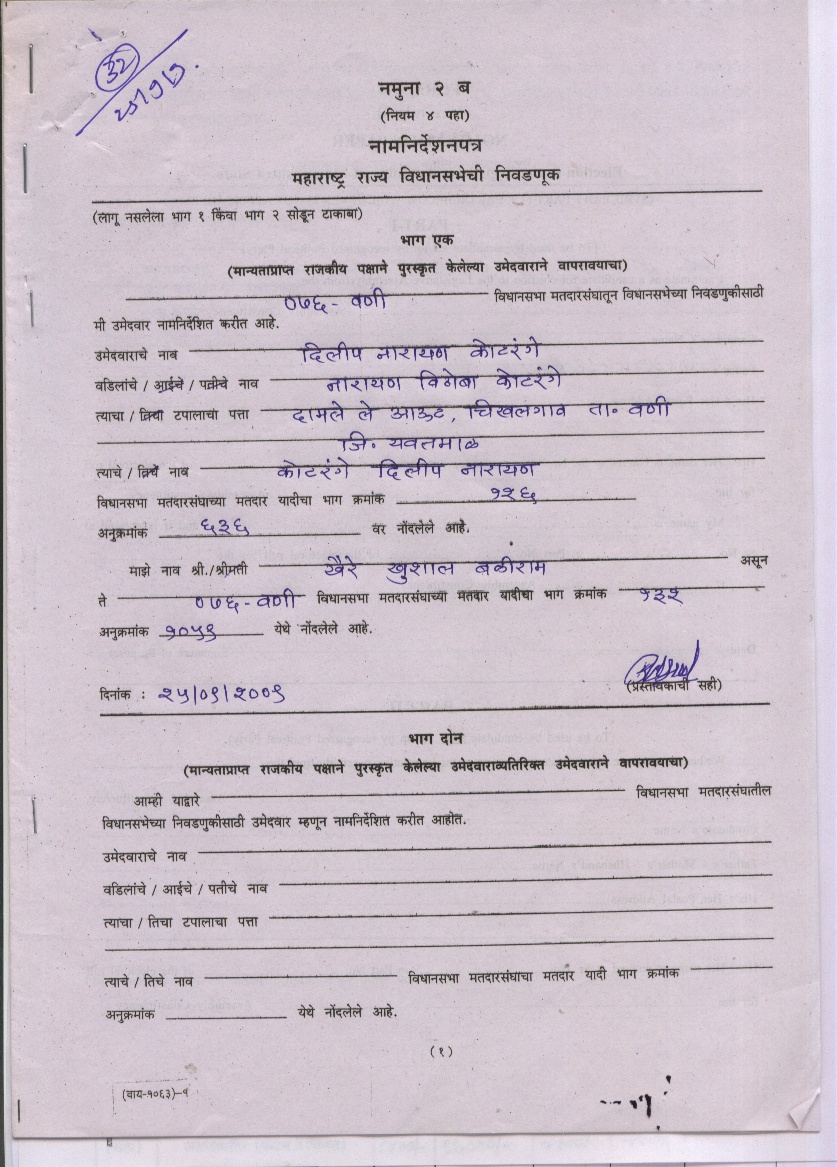 32
२५/९/९
नमुना २ ब
(नियम ४ पहा)
नामनिर्देशनपत्र
महाराष्ट्र राज्य विधानसभेची निवडणूक
(लागू नसलेला भाग १ किंवा भाग २ सोडून टाकाबा)
भाग एक
(मान्यताप्राप्त राजकीय पक्षाने पुरस्कृत केलेल्या उमेदवाराने वापरावयाचा)
०७६- वणी विधानसभा मतदारसंघातून विधानसभेच्या निवडणुकीसाठी
मी उमेदवार नामनिर्देशित करीत आहे.
उमेदवाराचे नाव दिलीप नारायण कोटरंगे
वडिलांचे / आईचे / पतीचे नाव नारायण विगेबा कोटरंगे
त्याचा / तिचा टपालाचा पत्ता दामले ले आऊट, चिखलगाव ता. वणी
जि. यवतमाळ
त्याचे / तिचे नाव कोटरंगे दिलीप नारायण
विधानसभा मतदारसंघाच्या मतदार यादीचा भाग क्रमांक १२६
अनुक्रमांक ६३६ वर नोंदलेले आहे.
माझे नाव श्री./श्रीमती खैरे खुशाल बळीराम असून
ते ०७६-वणी विधानसभा मतदारसंघाच्या मतदार यादीचा भाग क्रमांक १३२
अनुक्रमांक १०५९ येथे नोंदलेले आहे.
दिनांक : २५/०९/२००९ (प्रस्तावकाची सही)
भाग दोन
(मान्यताप्राप्त राजकीय पक्षाने पुरस्कृत केलेल्या उमेदवाराव्यतिरिक्त उमेदवाराने वापरावयाचा)
आम्ही याद्वारे विधानसभा मतदारसंघातील
विधानसभेच्या निवडणुकीसाठी उमेदवार म्हणून नामनिर्देशित करीत आहोत.
उमेदवाराचे नाव
वडिलांचे / आईचे / पतीचे नाव
त्याचा / तिचा टपालाचा पत्ता
त्याचे / तिचे नाव विधानसभा मतदारसंघाचा मतदार यादी भाग क्रमांक
अनुक्रमांक येथे नोंदलेले आहे.
(१)
(वाय-१०६३)-१